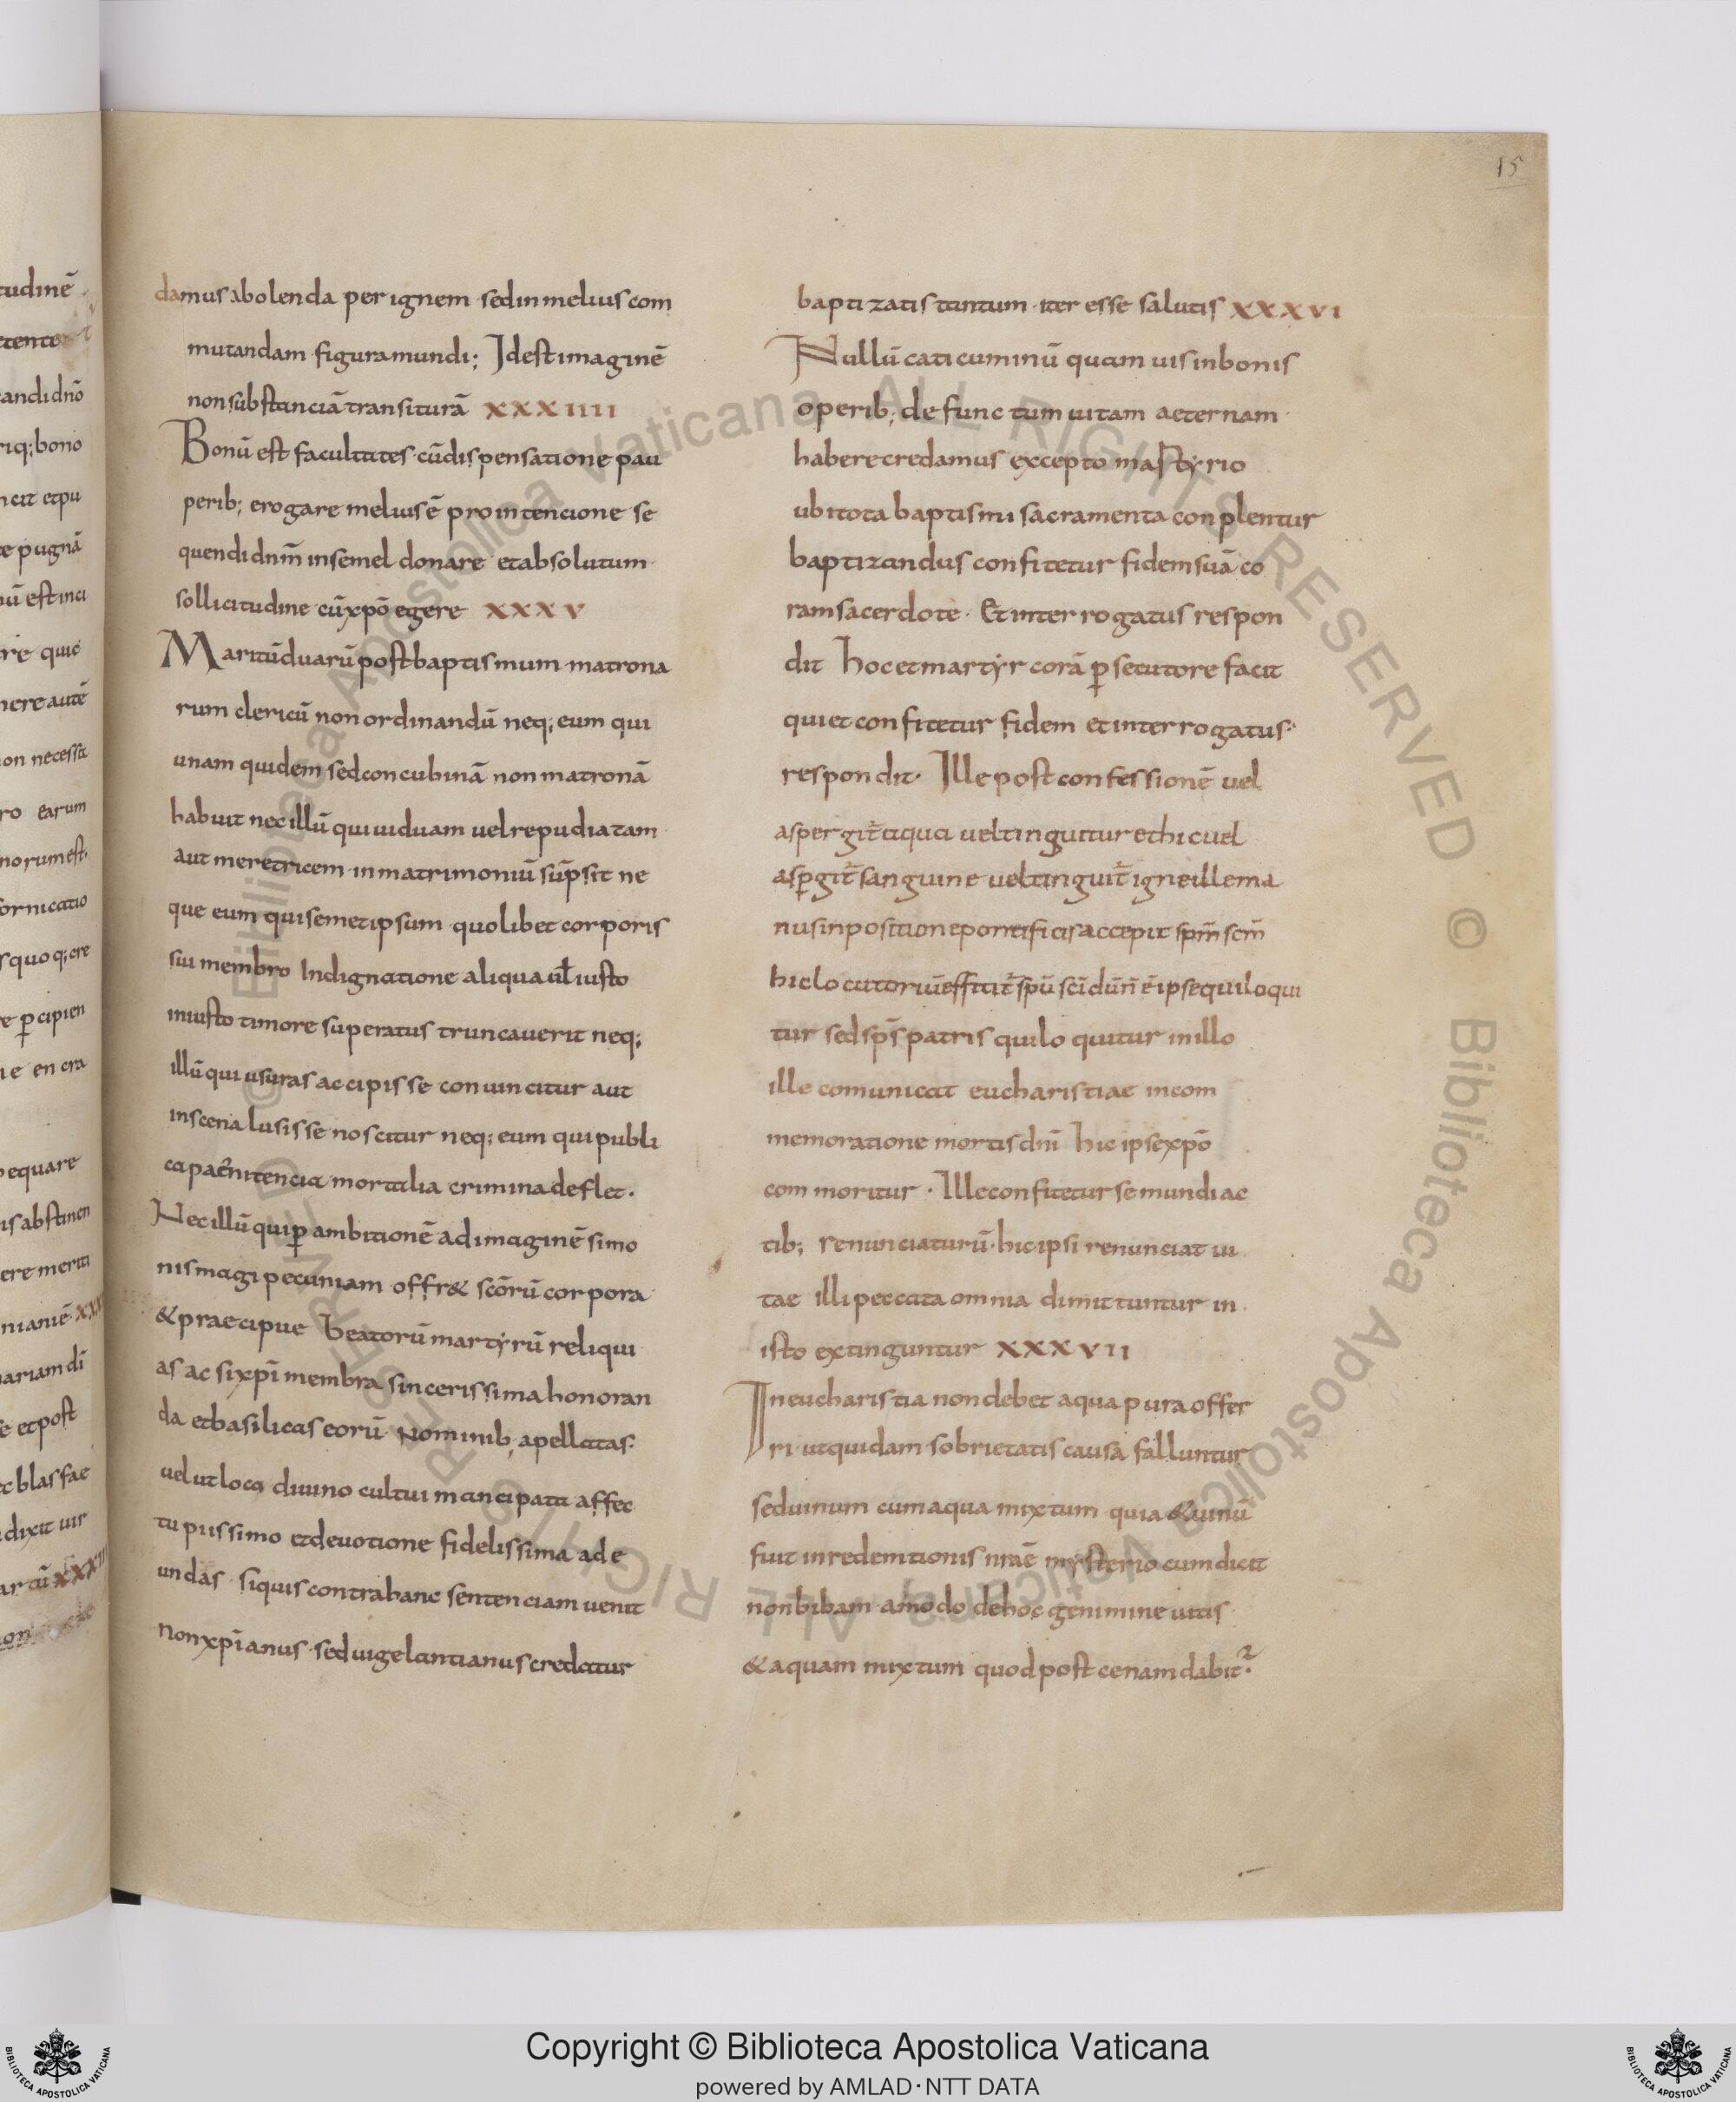 15
tudinē
andi dnō
riq; bono
e pugnā
re quie
nere autē
on necessa
ro earum
norum est
ornicatio
squoq; cre
e ꝑcipien
ie en cra
equare
is abstinen
ere meriti
niani&#275; xxx
ariam dī
e et post
c blasfae
dixit uir
damus abolenda per ignem · sed in melius com
mutandam · figura mundi; Id est imaginē
non substanciā transiturā XXXIIII
Bonū est facultates · cū dispensatione pau
perib; erogare melius ē pro intencione se
quendi dnm̄ in semel donare · et absolutum
sollicitudine cū xpō egere XXXV
Maritū duarū post baptismum · matrona
rum clericū non ordinandū neq; eum qui
unam quidem sed concubinā non matronā
habuit nec illū qui uiduam uel repudiatam
aut meretricem · in matrimoniū sūpsit ne
que eum qui semetipsum · quolibet corporis
sui membro Indignatione aliqua ul̄ iusto
iniusto timore superatus truncauerit neq;
illū qui usuras accipisse conuincitur aut
in scena lusisse noscitur neq; eum qui publi
ca paenitencia mortalia crimina deflet.
Nec illū qui ꝑ ambitionē ad imaginē simo
nis magi pecuniam · offr& scōrū corpora
& praecipue beatorū martyrū reliqui
as ac si xpī membra sincerissima honoran
da et basilicas eorū Nominib; apellatas·
uelut loca diuino cultui mancipata affec
tu piissimo et deuotione fidelissima ade
undas · siquis contra hanc sentenciam uenit
non xpīanus · sed uigelantianus credatur
baptizatis tantum · iter esse salutis XXXVI
Nullū caticuminū quam uis in bonis
operib; defunctum uitam aeternam
habere credamus excepto martyrio
ubi tota baptismi sacramenta conplentur
baptizandus confitetur fidem suā co
ram sacerdote · Et interrogatus respon
dit hoc et martyr corā ꝑsecutore facit
qui et confitetur fidem et interrogatus·
respondit · Ille post confessionē uel
aspergit̄ aqua uel tinguitur et hic uel
asꝑgit̄ sanguine uel tinguit̄ igne ille ma
nus inpositione pontificis accepit spm̄ scm̄
hic locutoriū efficit̄ spū scī dūn̄ ē ipse qui loqui
tur sed sps̄ patris qui loquitur in illo
ille comunicat eucharistiae in com
memoratione mortis dnī hic ipse xpō
com moritur · Ille confitetur se mundi ac
tib; renunciaturū · hic ipsi renunciat ui
tae illi peccata omnia dimittuntur in
isto extinguntur XXXVII
In eucharistia non debet aqua pura offer
ri · ut quidam · sobrietatis causa falluntur
sed uinum cum aqua mixtum quia & uinū
fuit in redemtionis nrāe mysterio cum dicit
non bibam amodo de hoc genimine uitis
& aquam mixtum quod post cenam dabit̄·
© Biblioteca Apostolica Vaticana ALL RIGHTS RESERVED © Biblioteca Apostolica Vaticana ALL RIGHTS RESERVED
Copyright © Biblioteca Apostolica Vaticana
powered by AMLAD·NTT DATA
BIBLIOTECA APOSTOLICA VATICANA
BIBLIOTECA APOSTOLICA VATICANA